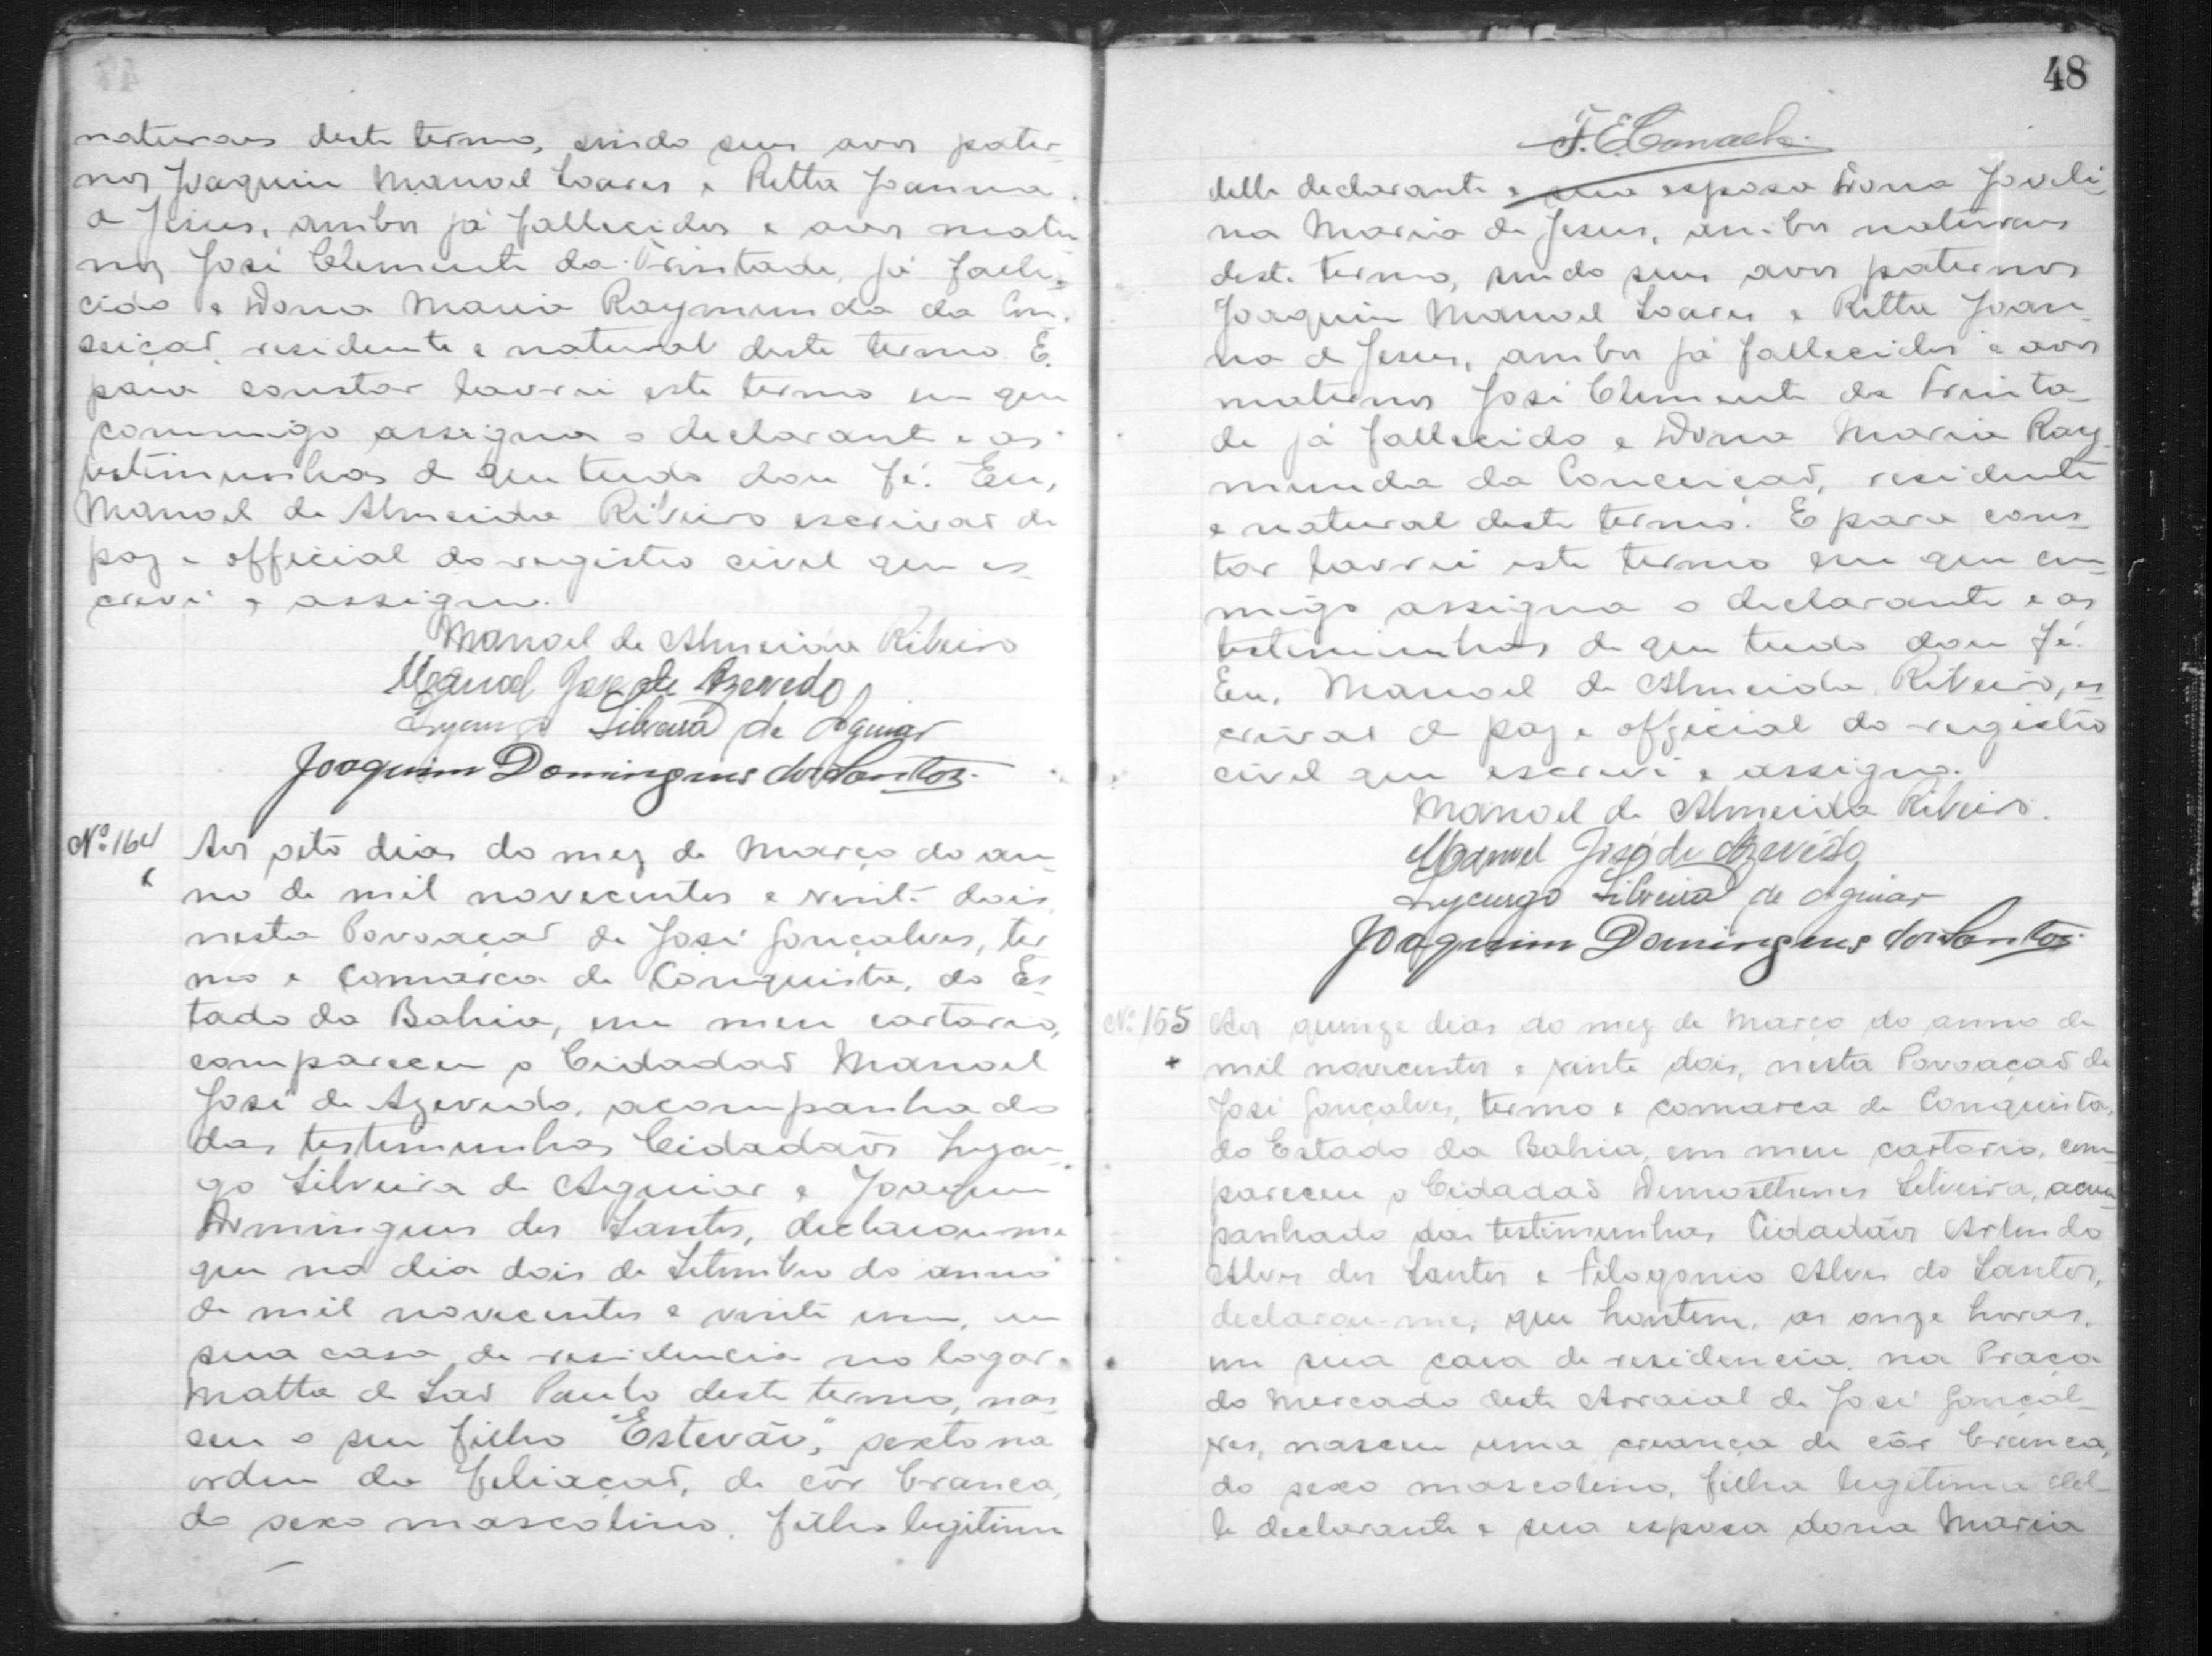 naturaes deste termo, sendo seus avos pater-
nos Joaquim Manoel Soares e Ritta Joanna
d Jesus, ambos já fallecidos e avos mater
nos José Clemente da Trintade, já falle-
cido e Dona Maria Raymunda da Con-
seiçaõ, residente e natural deste termo. E
para constar lavrei este termo em que
commigo assigna o declarante e as
testimunhas d que tudo dou fé. Eu,
Manoel de Almeida Ribeiro escrivaõ de
paz e official do registro civel que es-
crevi e assigno.
Manoel de Almeida Ribeiro
Manoel José de Azevedo
Lycurgo Silveira de Aguiar
Joaquim Domingues dos Santos.
Nº 164
Aos oito dias do mez de Março do an-
no de mil novecentos e vinte dois
nesta Povoaçaõ de José Gonçalves, ter
mo e Comarca de Conquista, do Es
tado da Bahia, em meu cartorio,
compareceu o Cidadaõ Manoel
José de Azevedo, acompanhado
das testimunhas Cidadaõs Lycur-
go Silveira de Aguiar e Joaquim
Domingues dos Santos, declarou-me
que no dia dois de Setembro do anno
de mil novecentos e vinte um, em
sua casa de residencia no logar
Matta d Saõ Paulo deste termo, nas-
ceu o seu filho "Estevão," sexto na
ordem da filiaçaõ, de côr branca,
do sexo mascolino, filho legitimo
48
delle declarante e sua esposa Dona Joveli-
na Maria de Jesus, ambos naturaes
deste termo, sendo seus avos paternos
Joaquim Manoel Soares e Ritta Joan-
na d Jesus, ambos já fallecidos e avos
maternos José Clemente da Trinta-
de já fallecido e Dona Maria Ray-
munda da Conceiçaõ, residente
e natural deste termo. E para cons-
tar lavrei este termo em que com-
migo assigna o declarante e as
testimunhas d que tudo dou fé.
Eu, Manoel de Almeida Ribeiro, es
crivaõ d paz e official do registro
civel que escrevi e assigno.
Manoel de Almeida Ribeiro.
Manoel José de Azevêdo
Lycurgo Silveira de Aguiar
Joaquim Domingues dos Santos.
Nº 165
Aos quinze dias do mez de Março do anno de
mil novecentos e vinte dois, nesta Povoaçaõ de
José Gonçalves, termo e comarca de Conquista,
do Estado da Bahia, em meu cartorio, com-
pareceu o Cidadaõ Demosthenes Silveira, acom-
panhado das testimunhas Cidadãos Arlindo
Alves dos Santos e Filogonio Alves do Santos,
declarou-me, que hontem, as onze horas,
em sua casa de residencia, na Praça
do Mercado deste Arraial de José Gonçal-
ves, nasceu uma creança de côr branca,
do sexo mascolino, filha legitima del-
le declarante e sua esposa dona Maria